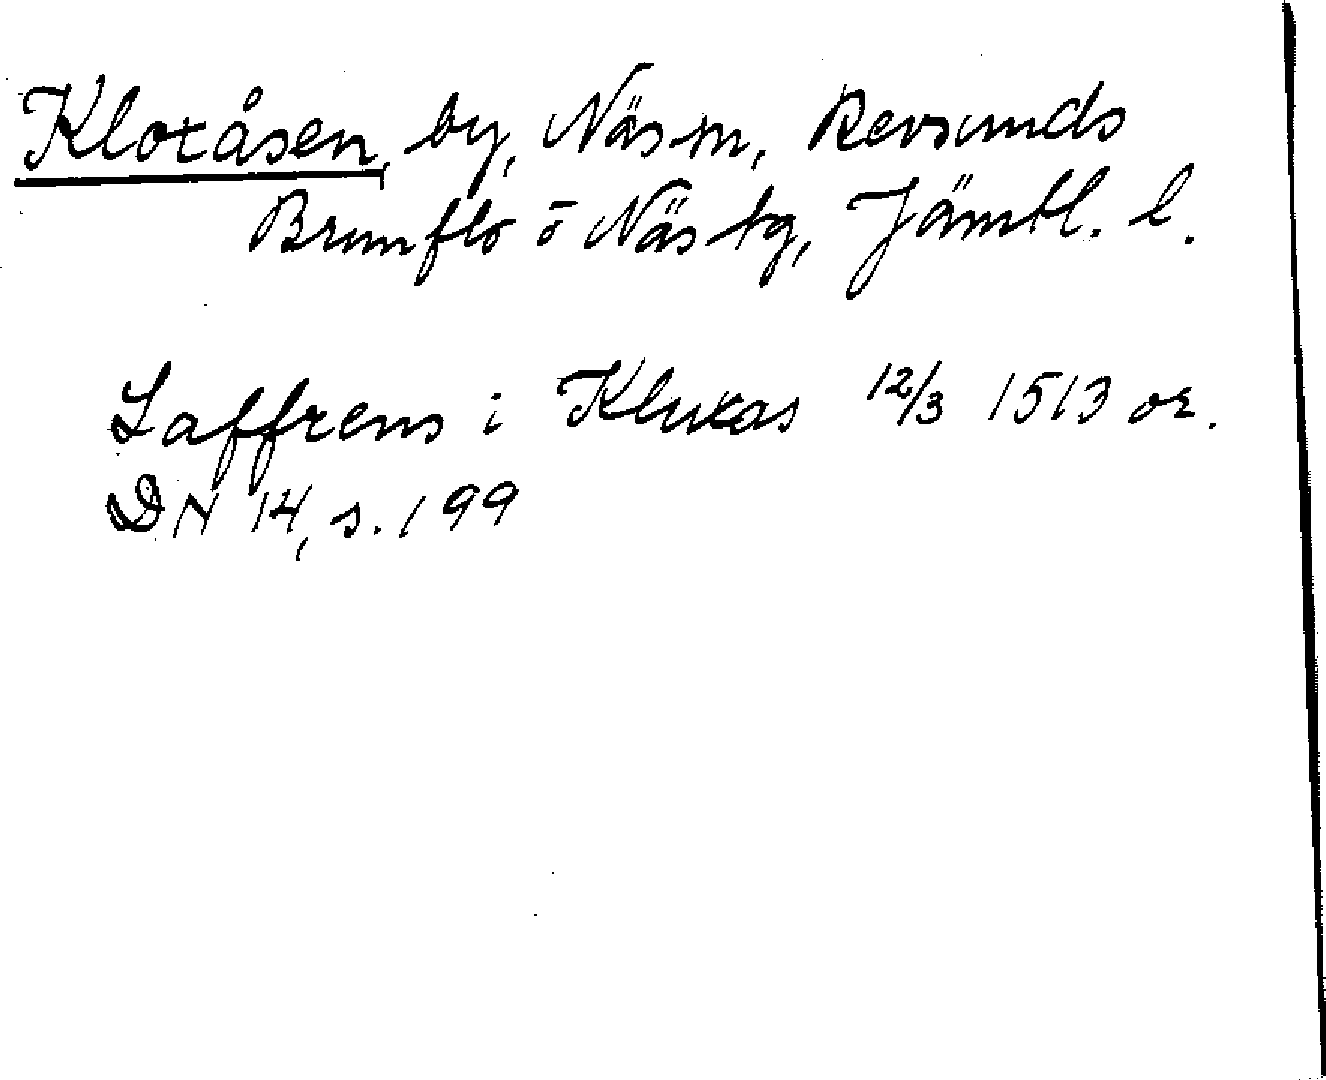 Kloxåsen, by, Näs sn, Revsunds
Brunflo ō Näs tg, Jämtl. l.
Laffrens i Kluxas 12/3 1513 or.
DN 14, s. 199